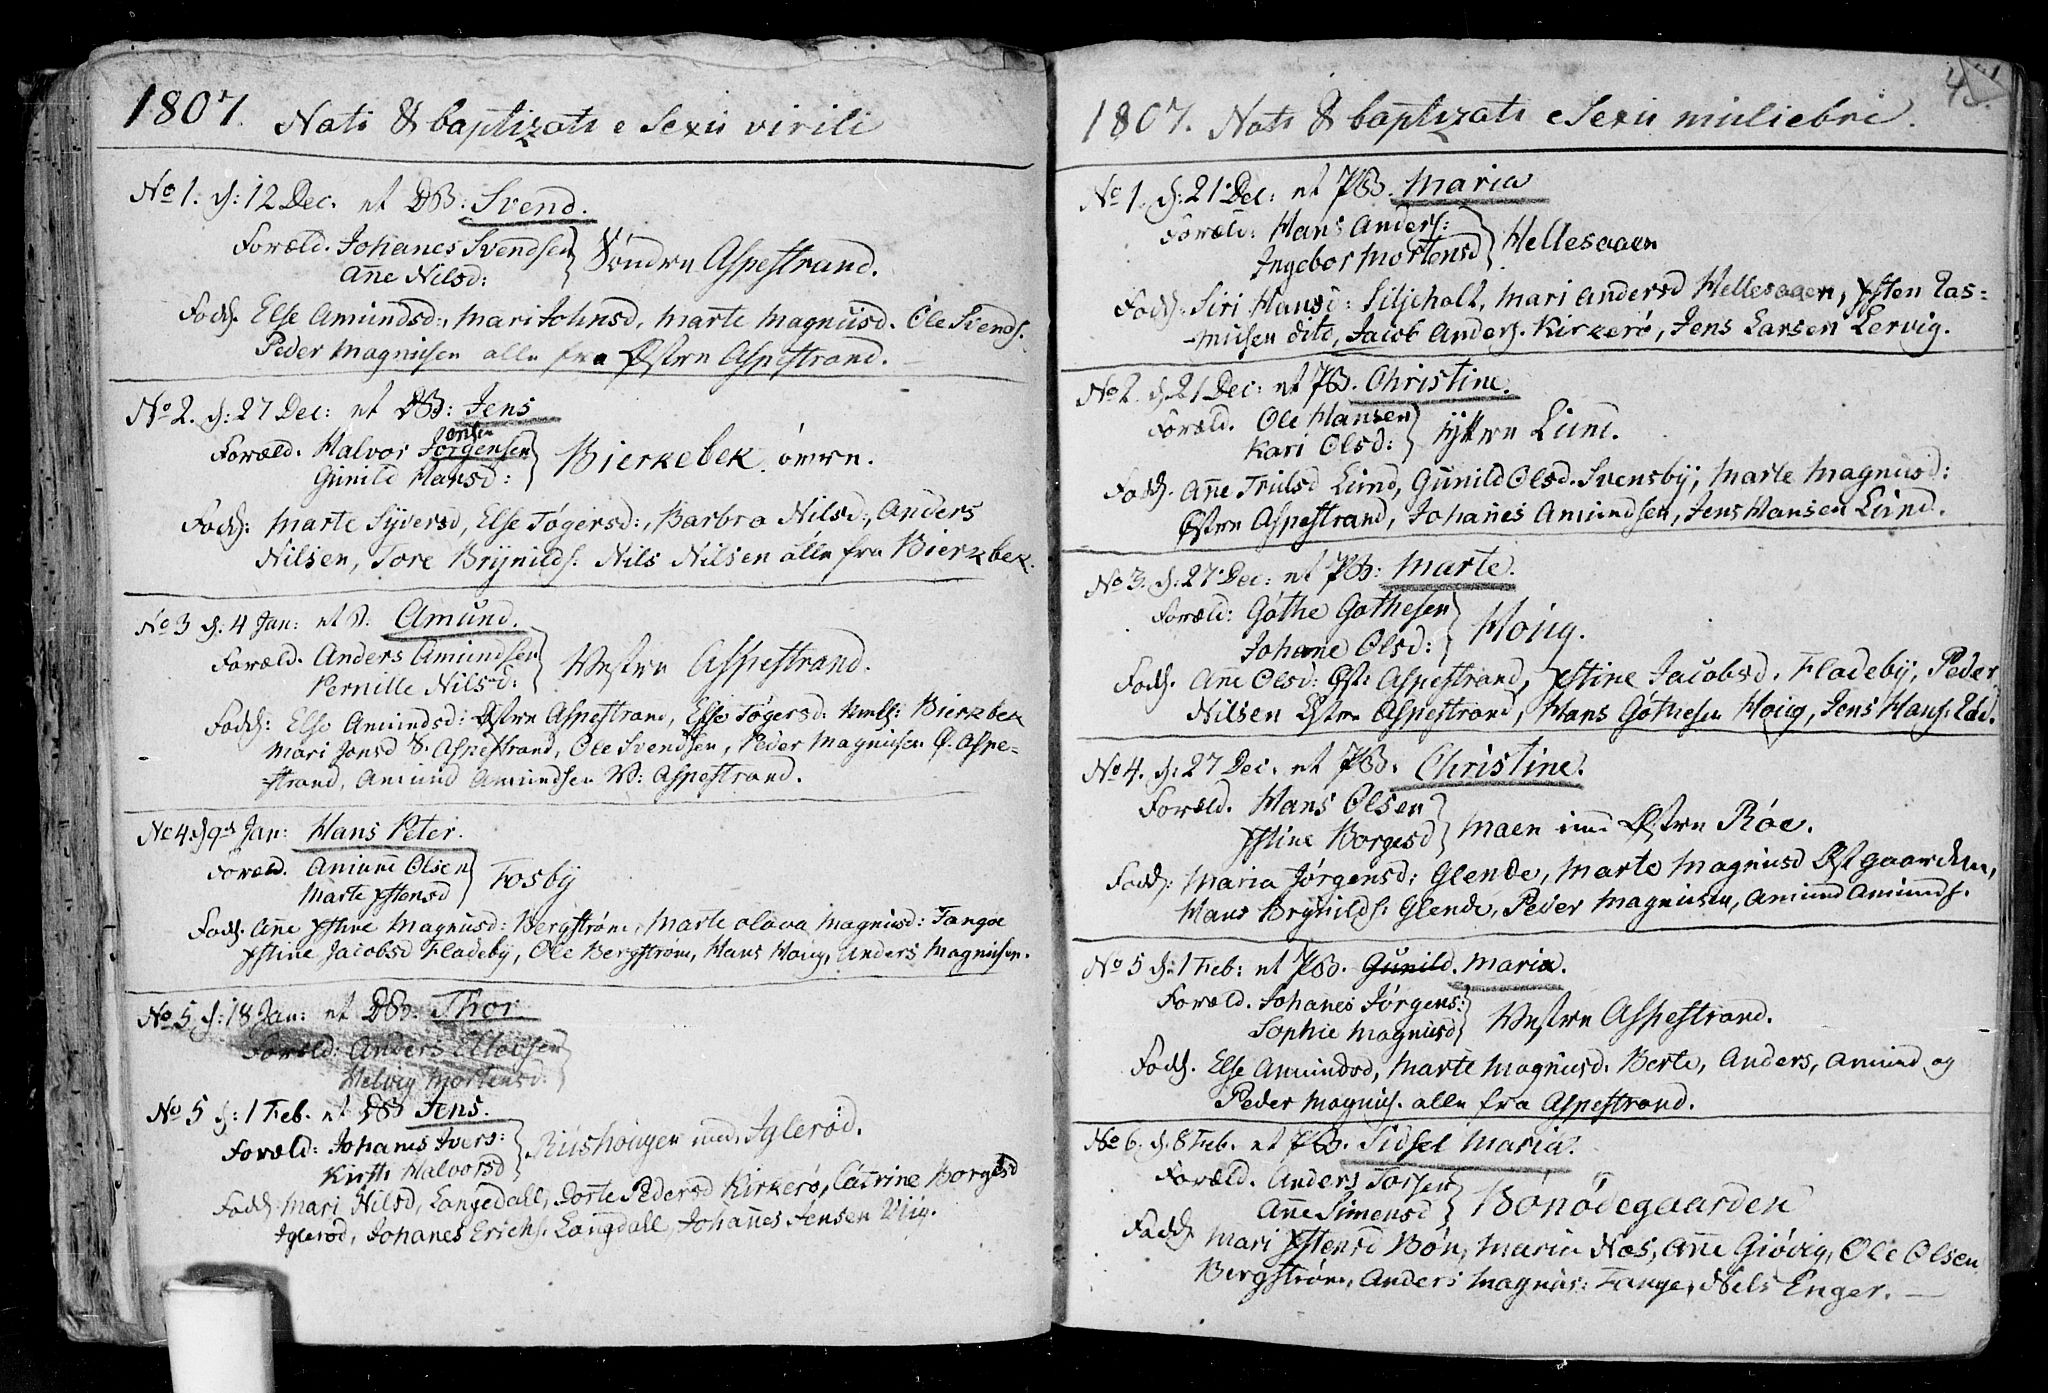 1807. Nati & baptizati e Sexu virili
No 1. d: 12 Dec. et DB: Svend.
Foræld. Johanes Svendsen
Añe Nilsd:
Søndre Aspestrand.
Fadd. Else Amundsd:, Mari Johnsd, Marte Magnusd. Ole Svends.
Peder Magnusen alle fra Østre Aspestrand.
No 2. d: 27 Dec: et DB: Jens
Foræld. Halvor Jorgensen
onsen
Gunild Hansd:
Bierkebek øvre.
Fadd: Marte Syversd, Else Tøgersd:, Barbra Nilsd:, Anders
Nilsen, Tore Brynilds. Nils Nilsen alle fra Bierkbek.
No 3 d: 4 Jan: et D. Amund.
Foræld. Anders Amundsen
Pernille Nilsd:
Westre Aspestrand.
Fadd: Else Amundsd: Østre Aspestrand, Else Tøgersd: Bierkbek
Mari Jonsd S. Aspestrand, Ole Svendsen, Peder Magnusen Ø. Aspe=
=strand, Amund Amundsen W: Aspestrand.
No 4. d 9d Jan: Hans Peter.
Foræld. Amund Olsen
Marte Ystensd
Fosby
Fadd. Añe Xstine Magnusd: Bergstrøm, Marte Olava Magnusd: Tangøe
Xstine Jacobsd Fladeby, Ole Bergstrøm, Hans Houg, Anders Magnusen.
No 5. d: 18 Jan: et DB: Thor.
Foræld: Anders Ellevsen
Helvig Mortensd:
No 5 d: 1 Feb. et DB Jens.
Foræld: Johanes Ivers:
Kirsti Halvorsd
Rushougen und. Iglerød.
Fadd Mari Nilsd, Langedall, Dorte Pedersd Kirkerø, Catrine Borgesd
Iglerød, Johanes Erichs. Langdall, Johañes Jensen Viig.
1807. Nati & baptizati e Sexu muliebri.
No 1. d: 21 Dec: et PB. Maria
Foræld: Hans Anders:
Ingebor Mortensd
Hellesaaen
Fadd. Siri Hansd: Siljeholt, Mari Andersd Hellesaaen, Ysten Ras=
=musen dito, Jacob Anders. Kirkerø, Jens Larsen Lervig.
No 2. d: 21 Dec: et PB. Christine.
Foræld. Ole Hansen
Kari Olsd:
Yttre Lund.
Fadd. Añe Trulsd Lund, Gunild Olsd. Svensby, Marte Magnusd:
Østre Aspestrand, Johañes Amundsen, Jens Hansen Lund.
No 3. d: 27 Dec: et PB: Marte.
Foræld: Gøthe Gøthesen
Johane Olsd:
Houg.
Fadd. Añe Olsd: Øst: Aspestrand, Xstine Jacobsd. Fladeby, Peder
Nilsen Østre Aspestrand, Hans Gøthesen Houg, Jens Hans. Eod.
No 4. d: 27 Dec. et PB. Christine.
Foræld. Hans Olsen
Xstine Borgesd
Maen und. Østre Røe.
Fadd: Maria Jørgensd: Glende, Marte Magnusd Østgaarden,
Hans Brynilds: Glende, Peder Magnusen, Amund Amunds.
No 5 d: 1 Feb: et PB. Gunild. Maria.
Foræld. Johanes Jørgens:
Sophie Magnusd
Westre Aspestrand.
Fadd. Else Amundsd, Marte Magnusd. Berte, Anders, Amund og
Peder Magnus. alle fra Aspestrand.
No 6. d. 8 Feb. et PB. Sidsel Maria.
Foræld. Anders Torsen
Añe Simensd
Bønødegaarden
Fadd. Mari Ystensd Bøn, Maria Næs, Añe Giøvig, Ole Olsen
Bergstrøm, Anders Magnus: Tange, Nels Enger.